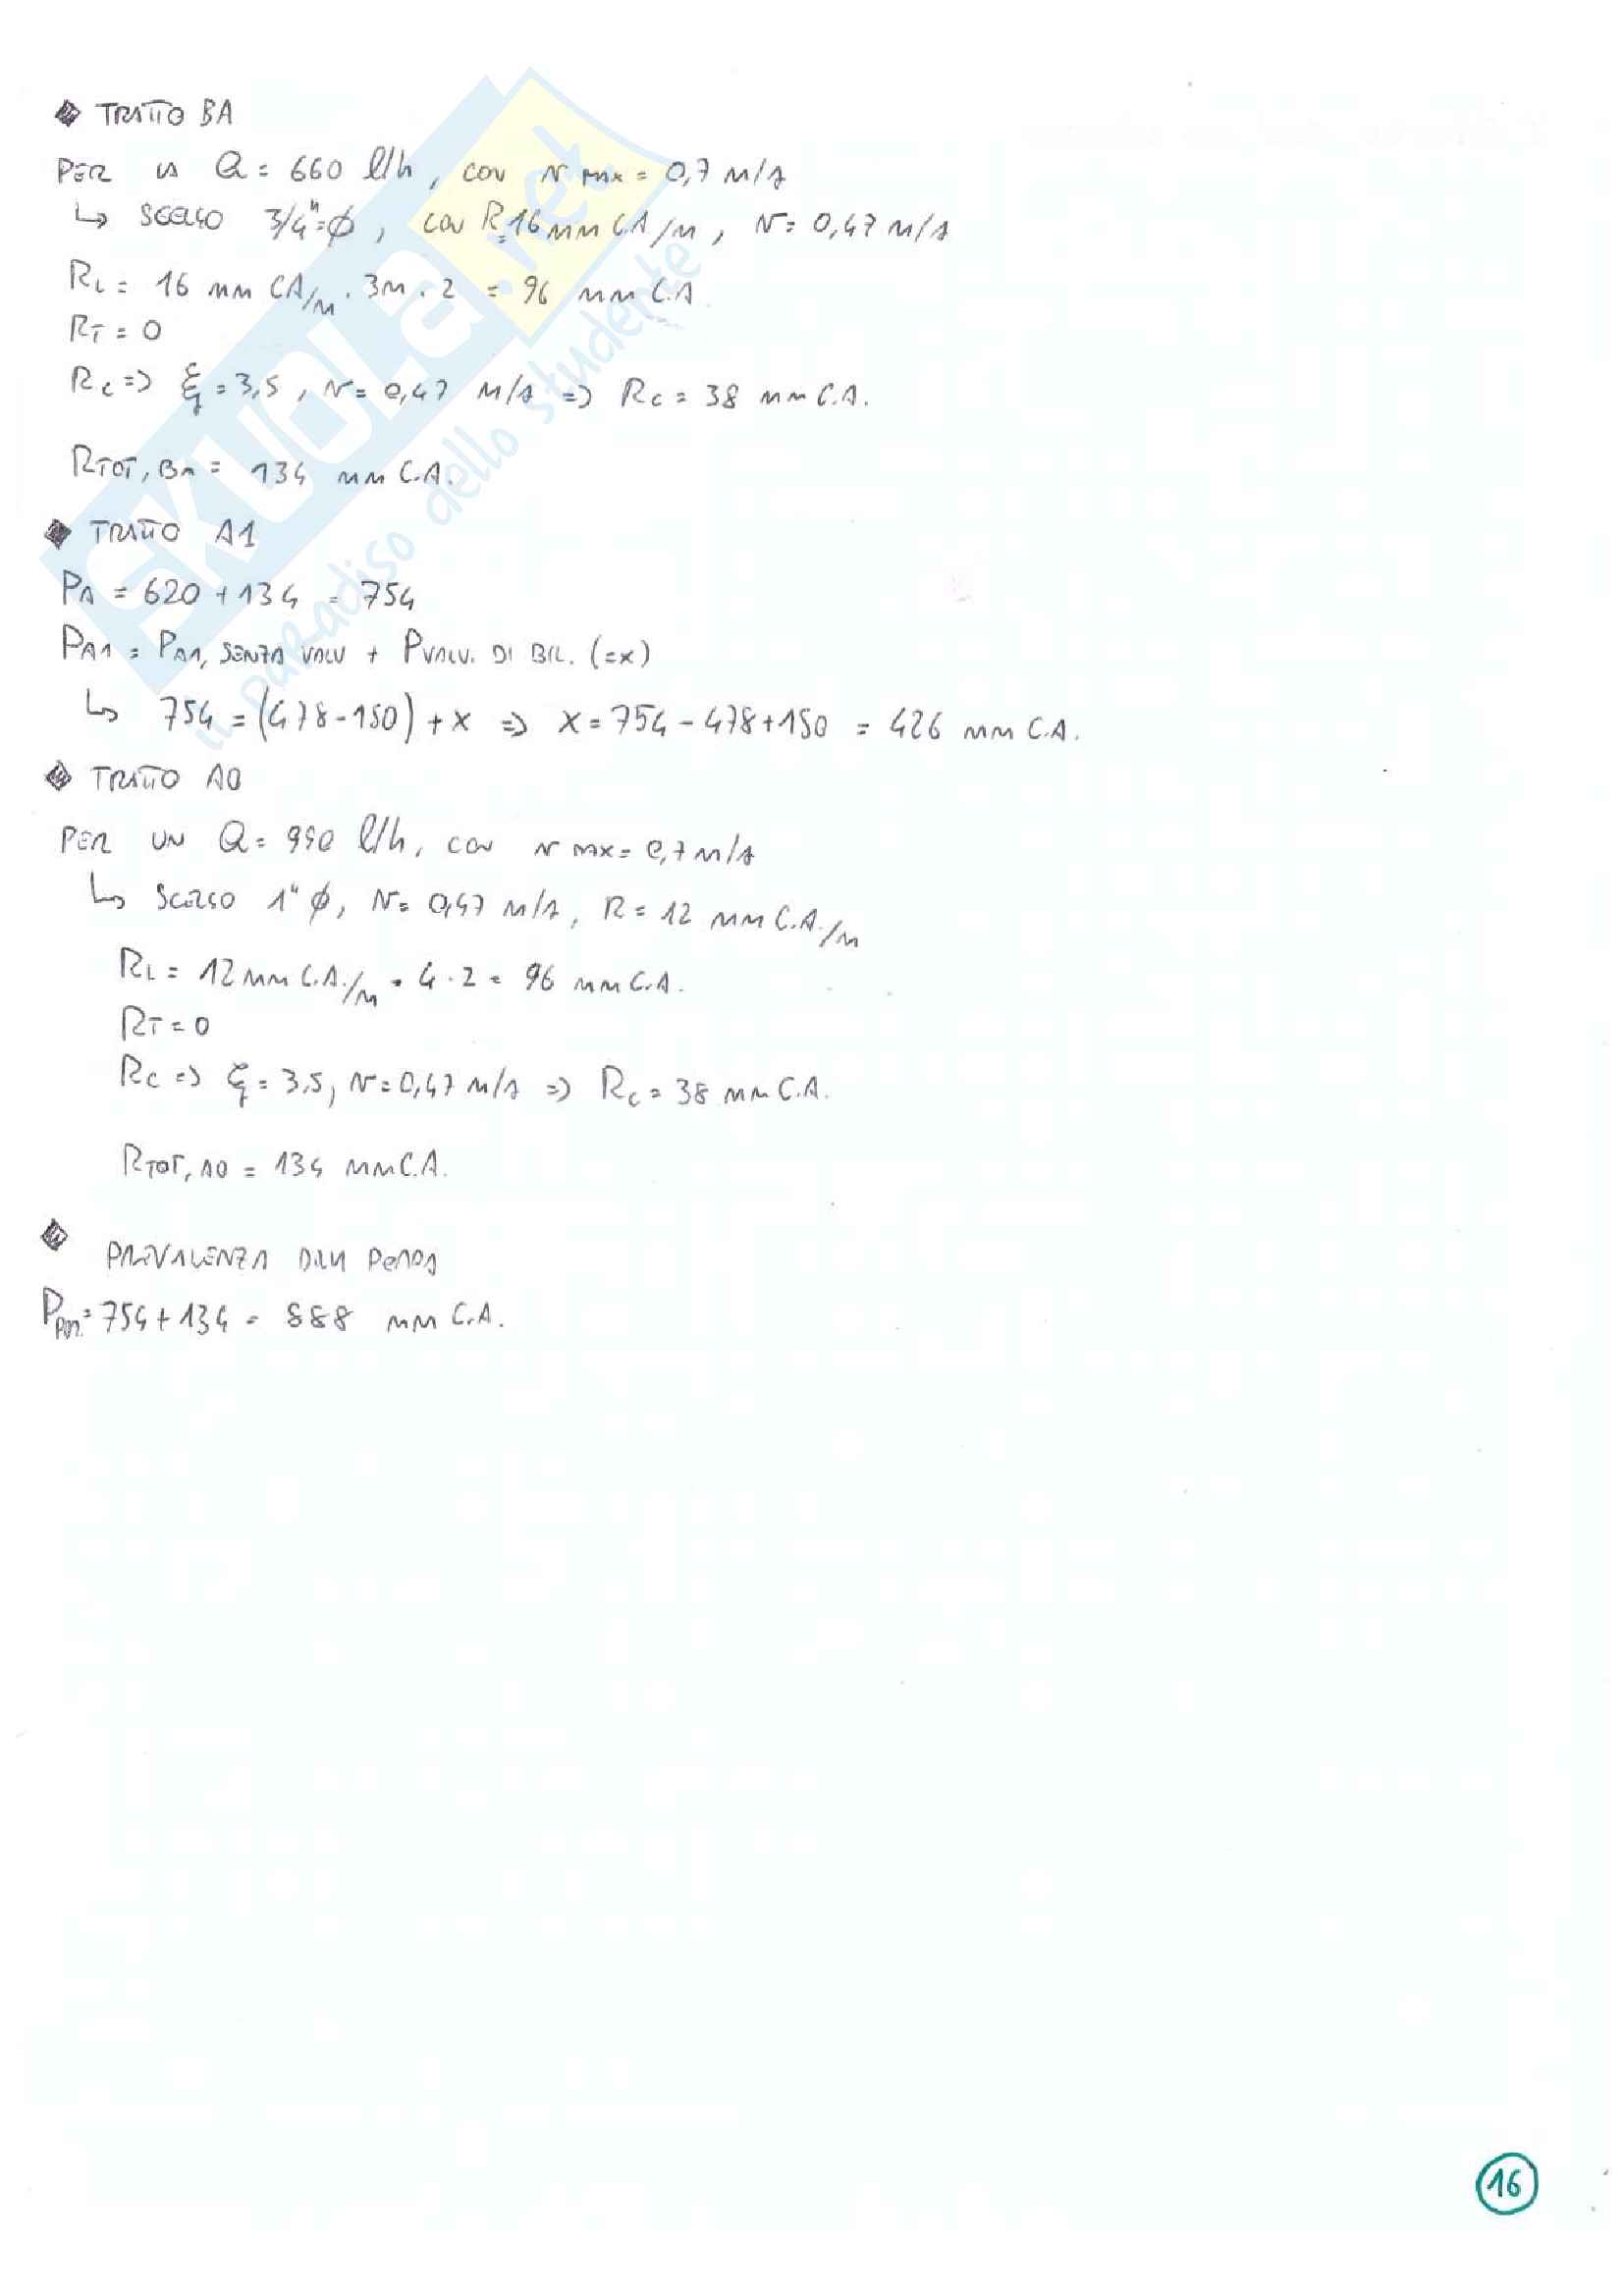 TRATTO BA
PER UN Q = 660 l/h, CON v max = 0,7 m/s
↳ SCELGO 3/4" = ϕ, CON R = 16 mm CA/m, v = 0,47 m/s
RL = 16 mm CA/m · 3m · 2 = 96 mm C.A
RT = 0
Rc => ξ = 3,5, v = 0,47 m/s => Rc = 38 mm C.A.
RTOT, BA = 134 mm C.A.
TRATTO A1
PA = 620 + 134 = 754
PA1 = PA1, SENZA VALV + PVALV. DI BIL. (=x)
↳ 754 = (478-150) + x => x = 754 - 478 + 150 = 426 mm C.A.
TRATTO AO
PER UN Q = 990 l/h, CON v max = 0,7 m/s
↳ SCELGO 1" ϕ, v = 0,47 m/s, R = 12 mm C.A./m
RL = 12 mm C.A./m · 4 · 2 = 96 mm C.A.
RT = 0
RC => ξ = 3,5, v = 0,47 m/s => Rc = 38 mm C.A.
RTOT, AO = 134 mm C.A.
PREVALENZA DELLA POMPA
= 754 + 134 = 888 mm C.A.
16
SKUOLA.net
il paradiso dello studente